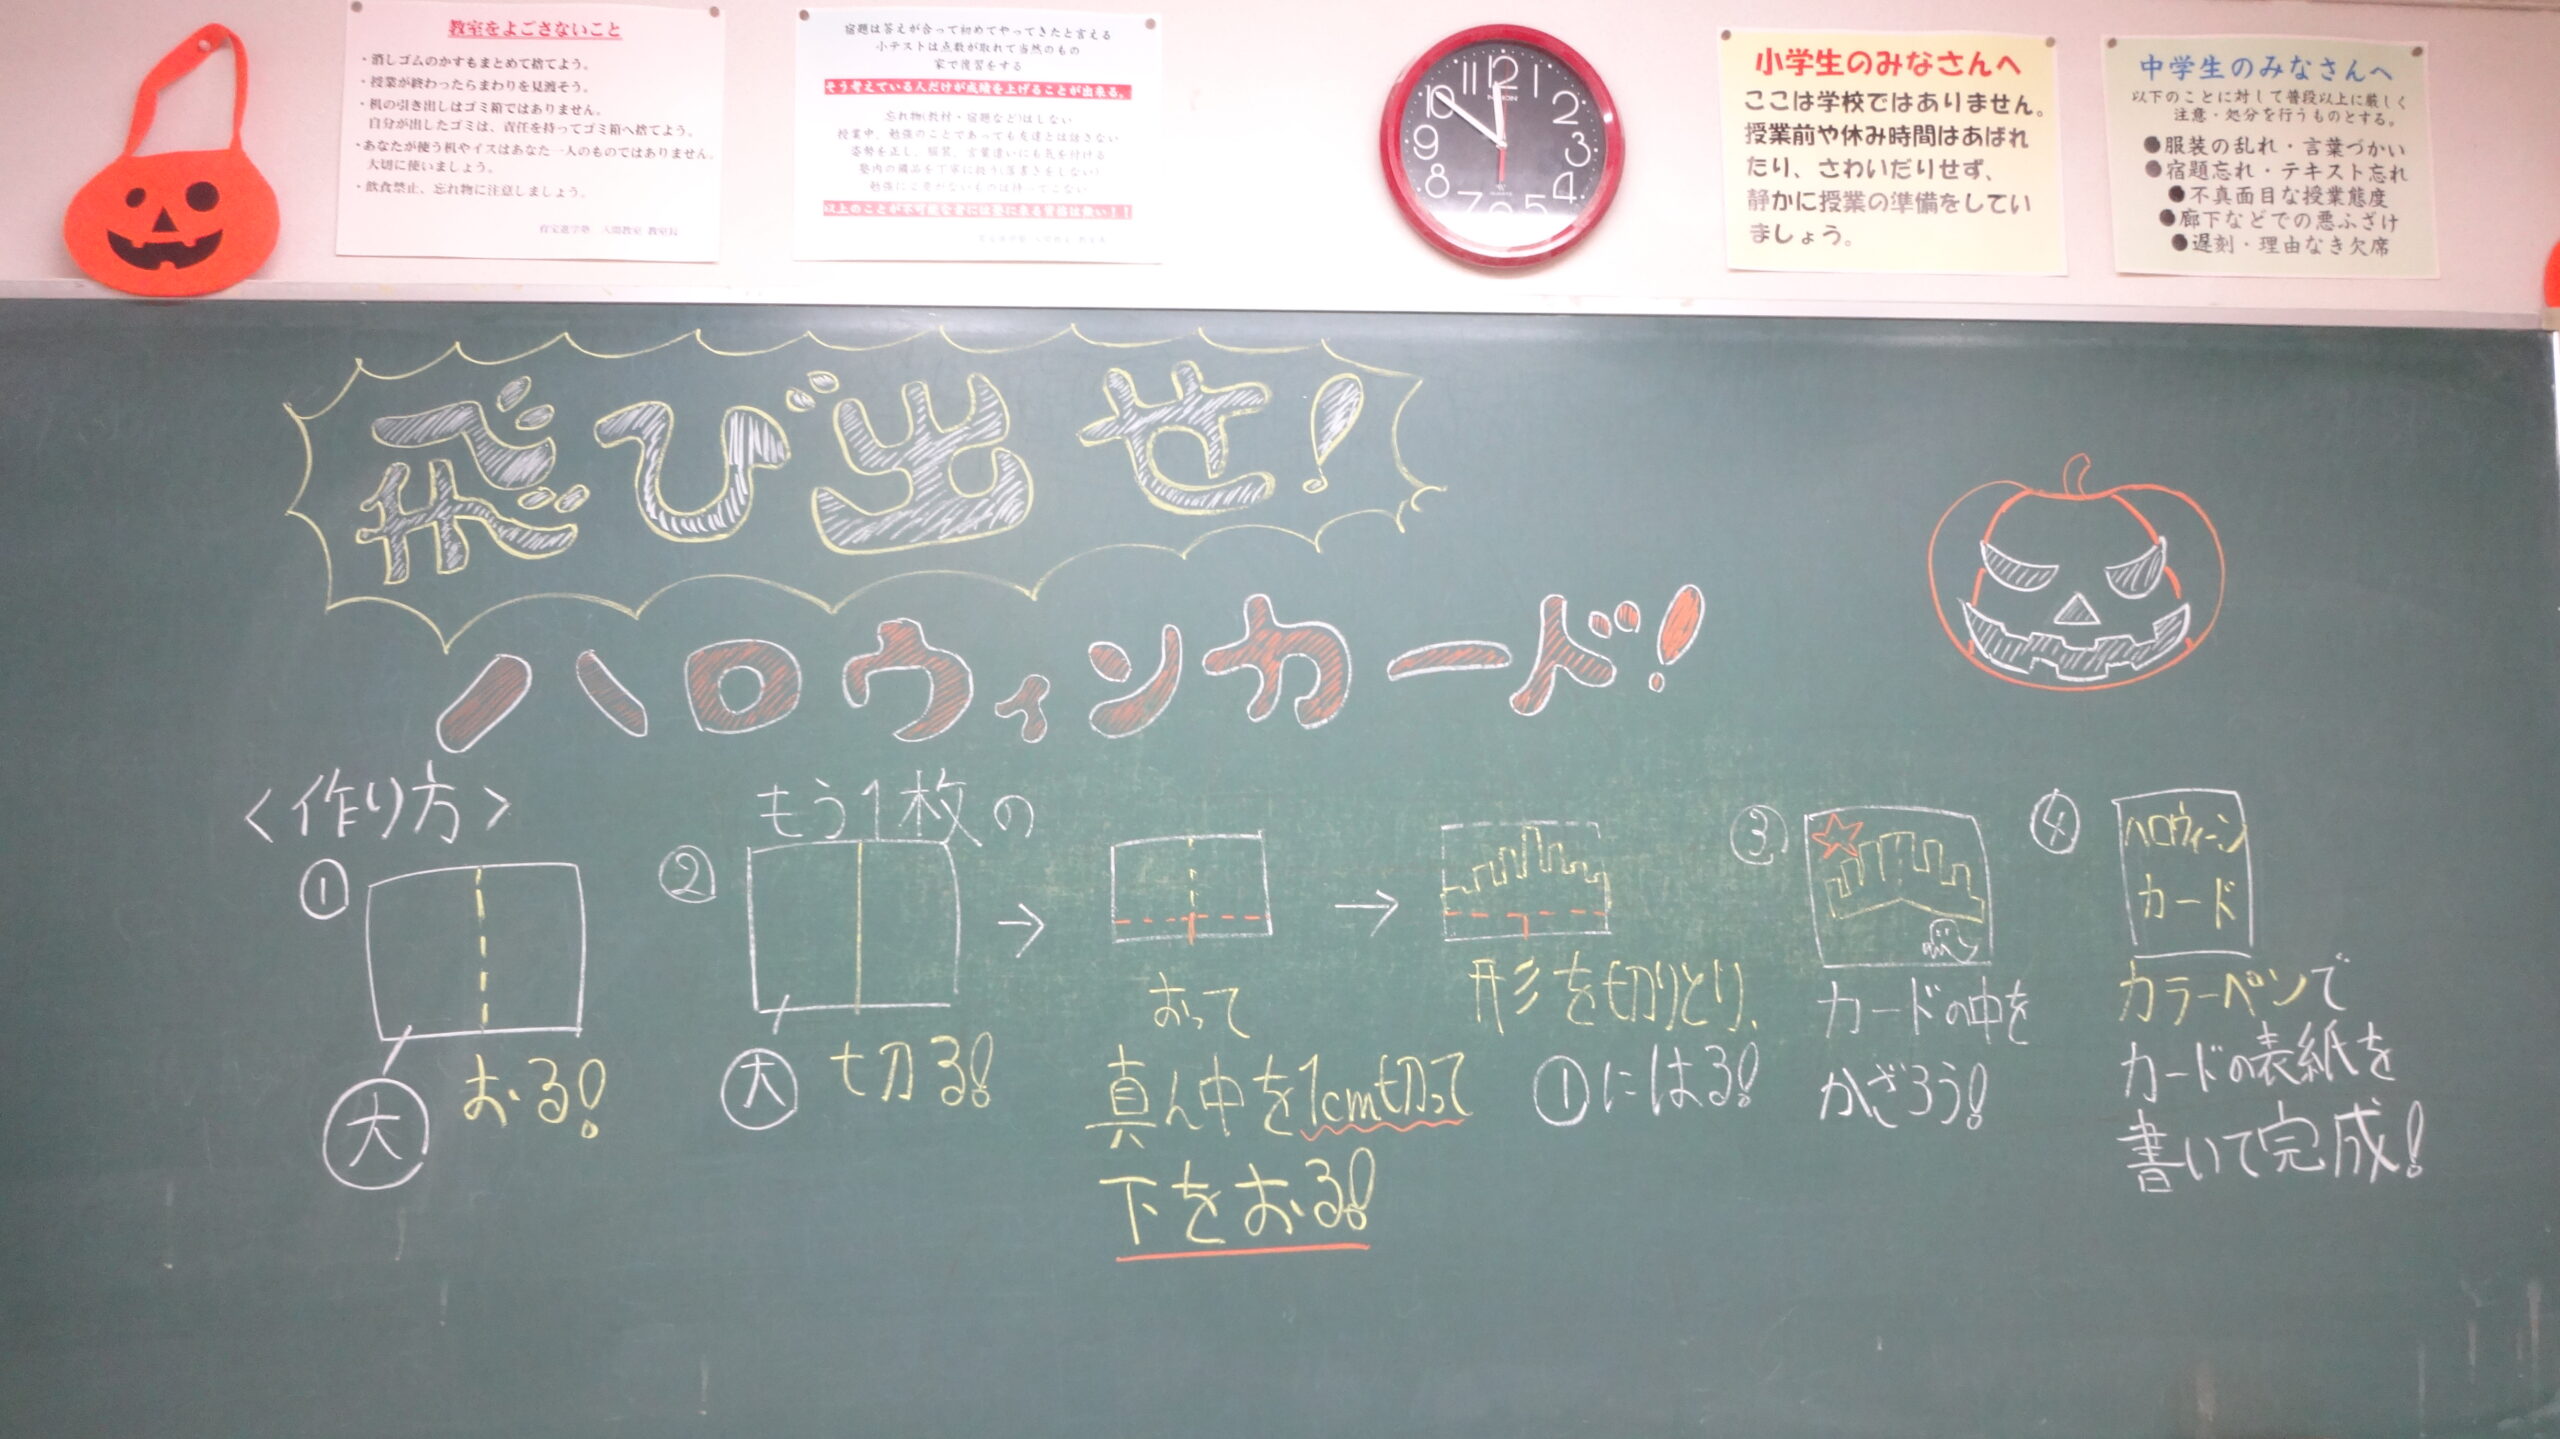 教室をよごさないこと
・消しゴムのかすもまとめて捨てよう。
・授業が終わったらまわりを見渡そう。
・机の引き出しはゴミ箱ではありません。
自分が出したゴミは、責任を持ってゴミ箱へ捨てよう。
・あなたが使う机やイスはあなた一人のものではありません。
大切に使いましょう。
・飲食禁止、忘れ物に注意しましょう。
宿題は答えが合って初めてやってきたと言える
小テストは点数が取れて当然のもの
家で復習をする
そう考えている人だけが成績を上げることが出来る。
忘れ物(教材・宿題など)はしない
授業中、勉強のことであっても友達とは話さない
姿勢を正し、服装、言葉遣いにも気を付ける
塾内の備品を丁寧に扱う(落書きをしない)
勉強に必要がないものは持ってこない
以上のことが不可能な者には塾に来る資格は無い！！
12
1
2
3
4
5
6
7
8
9
10
11
小学生のみなさんへ
ここは学校ではありません。
授業前や休み時間はあばれ
たり、さわいだりせず、
静かに授業の準備をしてい
ましょう。
中学生のみなさんへ
以下のことに対して普段以上に厳しく
注意・処分を行うものとする。
●服装の乱れ・言葉づかい
●宿題忘れ・テキスト忘れ
●不真面目な授業態度
●廊下などでの悪ふざけ
●遅刻・理由なき欠席
飛び出せ!
ハロウィンカード!
<作り方>
①
大
おる!
②
もう1枚の
大
切る!
→
おって
真ん中を1cm切って
下をおる!
→
形を切りとり、
①にはる!
③
カードの中を
かざろう!
④
ハロウィーン
カード
カラーペンで
カードの表紙を
書いて完成!